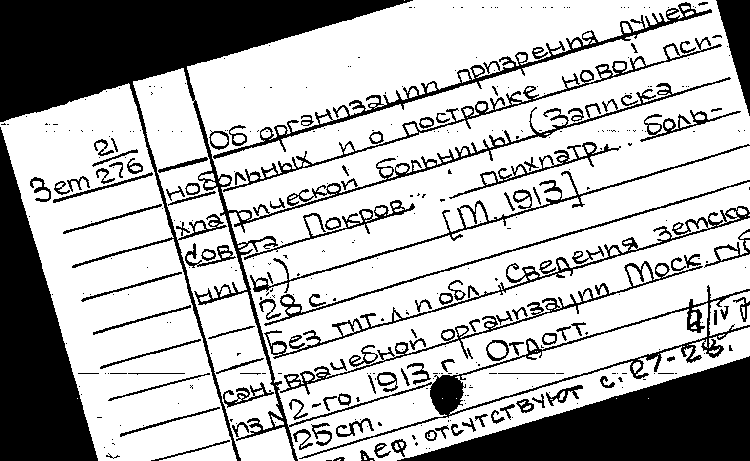 Зем 21/276
Об организации призрения душев-
нобольных и о постройке новой пси-
хиатрической больницы. (Записка
совета Покров. психиатр. боль-
ницы).
[М., 1913].
28 с.
Без тит. л. и обл. "Сведения земско
сан.-врачебной организации Моск. губ
2-го, 1913 г." Отд. отт.
из №
25 cm.
деф: отсутствуют с. 27-28.